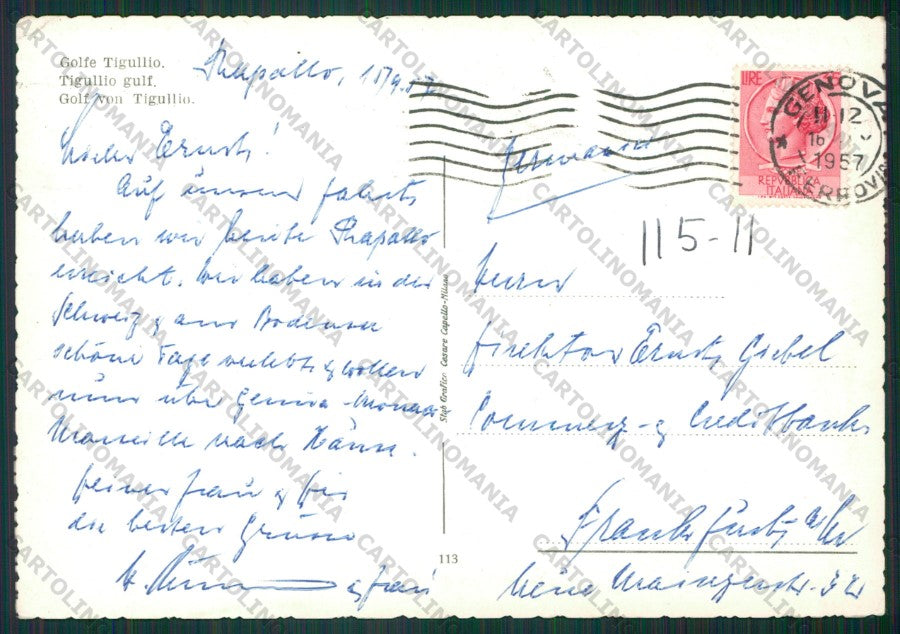 Golfe Tigullio.
Tigullio gulf.
Golf von Tigullio.
Rapallo, 15/9.57
Lieber Ernst!
Auf unserer Fahrt
haben wir heute Rapallo
erreicht. Wir haben in der
Schweiz & am Bodensee
schöne Tage verlebt & wollen
nun über Genua - Monaco
Marseille nach Hause.
Deiner Frau & Dir
die besten Grüsse
& Frau
Stab. Grafico Cesare Capello-Milano
113
LIRE 35
REPUBBLICA
ITALIANA
GENOVA
11-12
16
1957
FERROVIA
Germania
115-11
Herrn
Direktor Ernst Giebel
Commerz- & Creditbank
Frankfurt a/M
Neue Mainzerstr. 32
CARTOLINOMANIA